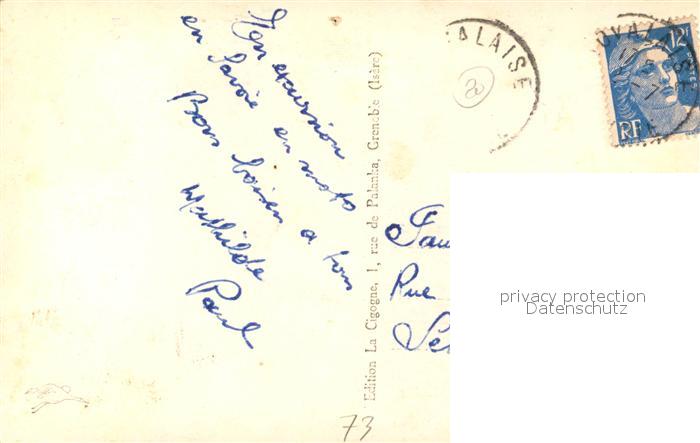 En excursion
en Savoie en moto
Bons baisers a tous
Mathilde
Paul
Edition La Cigogne, 1, rue de Palanka, Grenoble (Isère)
ALAISE
20
12F
RF
Rue
privacy protection
Datenschutz
73